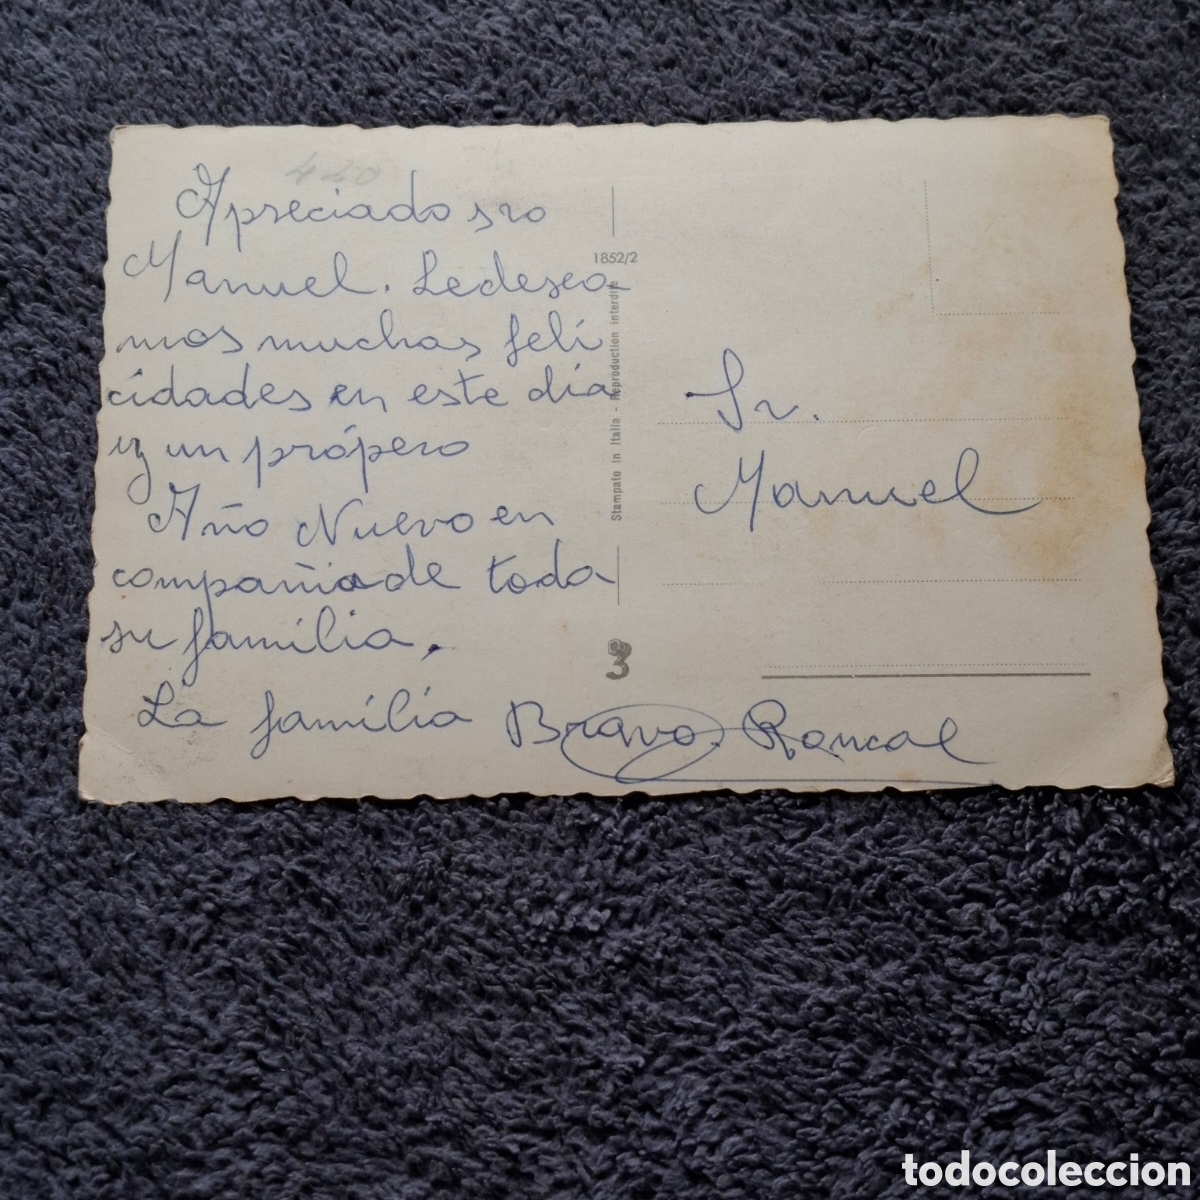 420
Apreciado sro
Manuel. Ledesea
mos muchas feli
cidades en este dia
y un própero
Año Nuevo en
compañia de toda
su familia.
La familia Bravo. Roncal
1852/2
Stampato in Italia - Reproduction interdite
3
Sr.
Manuel
todocoleccion